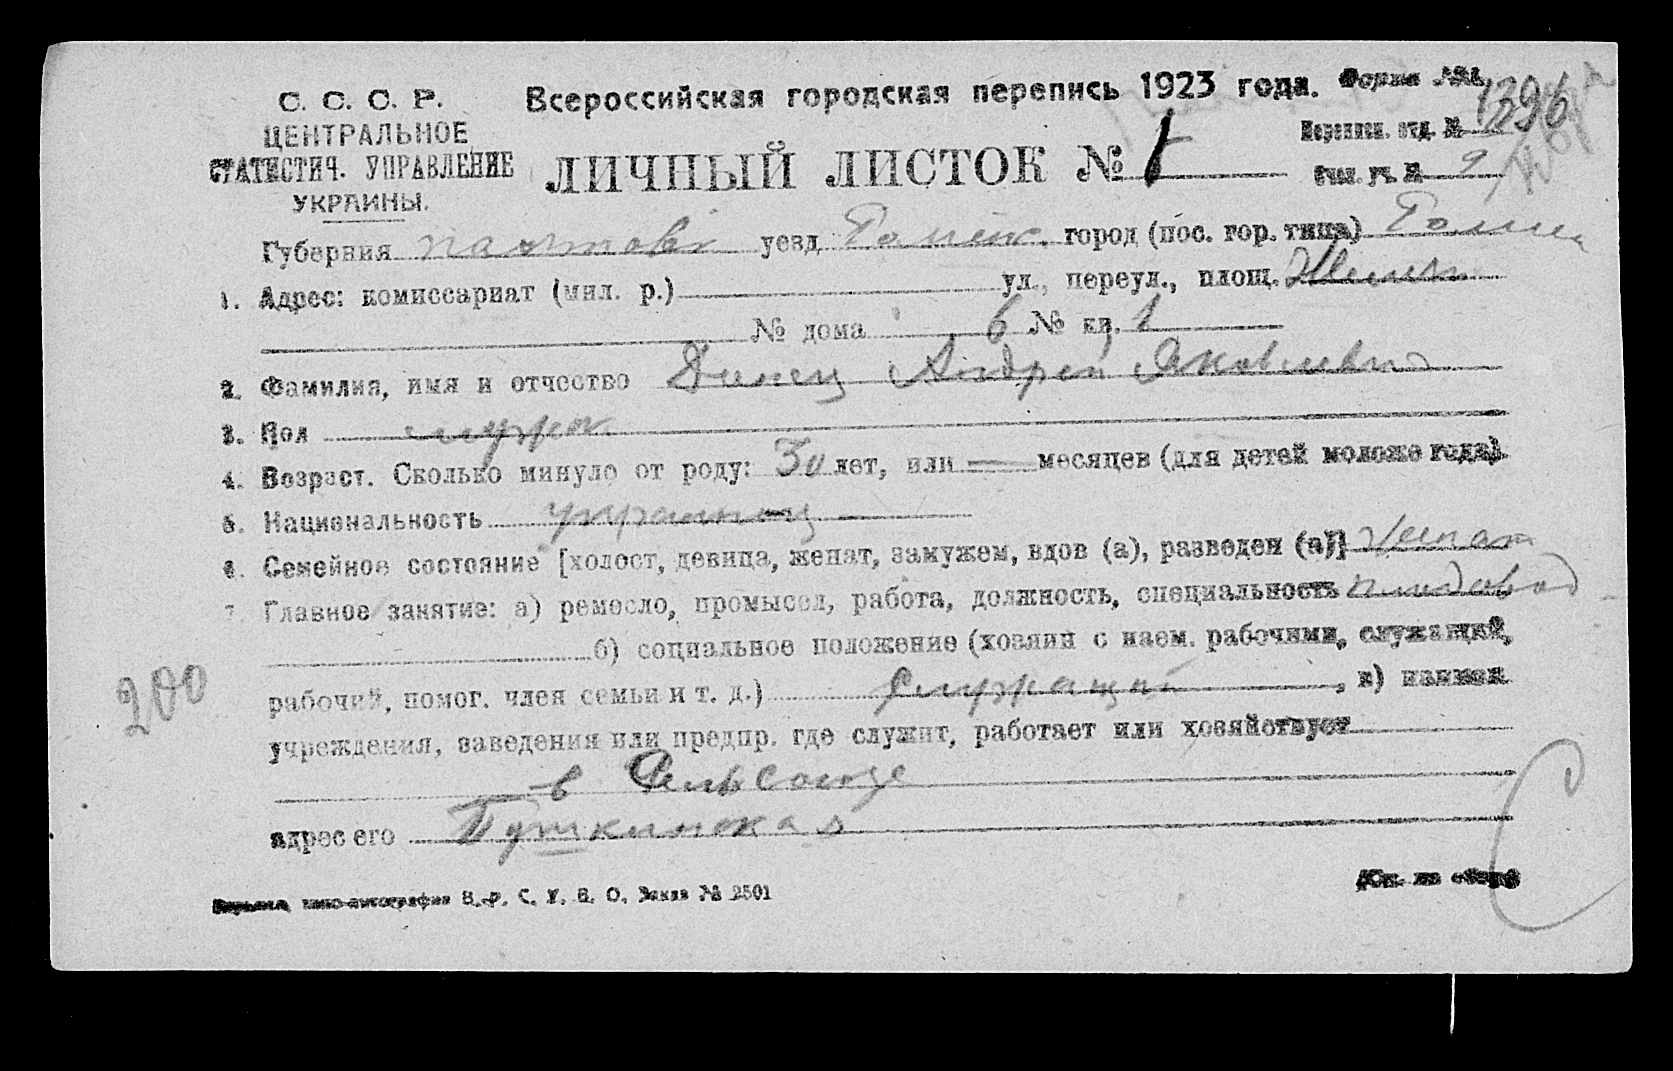 С. С. С. Р.
ЦЕНТРАЛЬНОЕ
СТАТИСТИЧ. УПРАВЛЕНИЕ
УКРАИНЫ.
Всероссийская городская перепись 1923 года. Форма
1396
Переписн. отд. №
ЛИЧНЫЙ ЛИСТОК № 1
Счетн. уч. № 9
Губерния уезд город (пос. гор. типа)
1. Адрес: комиссариат (мил. р.) ул., переул., площ.
№ дома 6 № кв. 1
2. Фамилия, имя и отчество Андрей Яковлевич
3. Пол мужск
4. Возраст. Сколько минуло от роду: 30 лет, или — месяцев (для детей моложе года).
5. Национальность украинец
6. Семейное состояние [холост, девица, женат, замужем, вдов (а), разведен (а)] женат
7. Главное занятие: а) ремесло, промысел, работа, должность, специальность
б) социальное положение (хозяин с наем. рабочими, служащий,
рабочий, помог. член семьи и т. д.) Служащий, в) наимен
200
учреждения, заведения или предпр. где служит, работает или хозяйствует
в Сельсоюзе
адрес его Пушкинская
В.-Р. С. У. В. О. Заказ № 2501